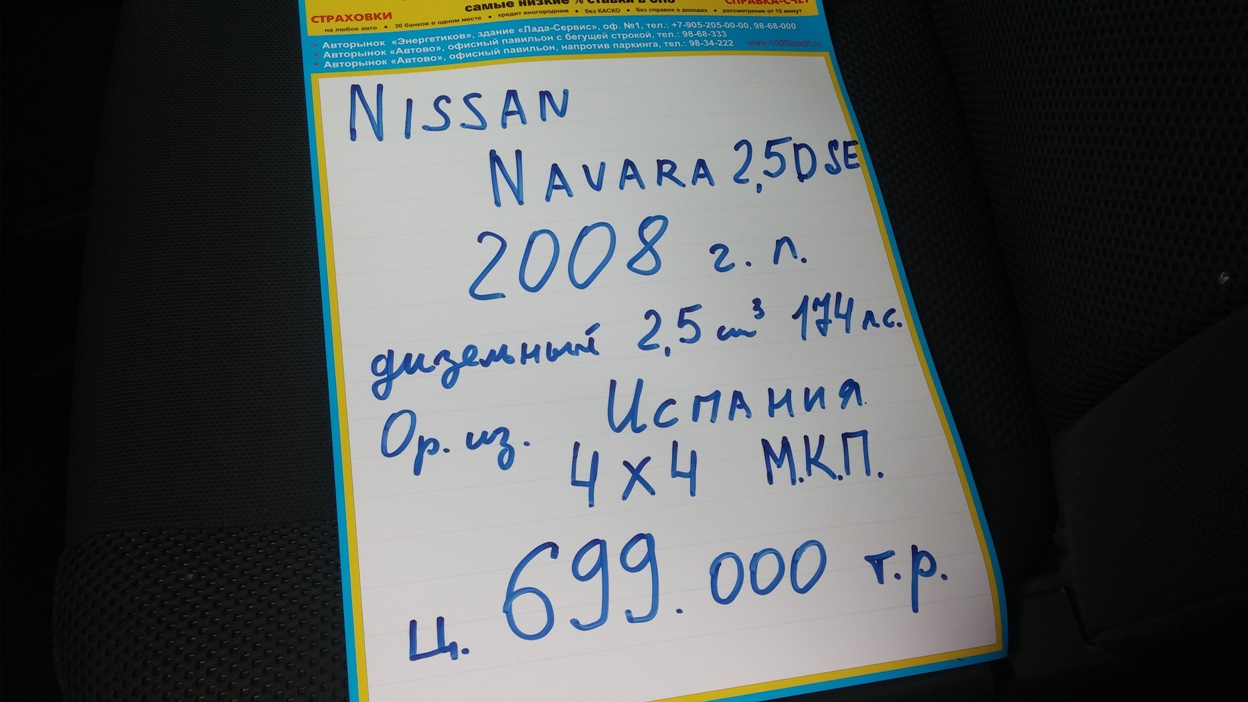 самые низкие % ставки в
СТРАХОВКИ
СПРАВКА-СЧЕТ
на любое авто • 30 банков в одном месте • кредит иногородним • без КАСКО • без справок о доходах • рассмотрение от 15 минут
• Авторынок «Энергетиков», здание «Лада-Сервис», оф. №1, тел.: +7-905-205-00-00, 98-68-000
• Авторынок «Автово», офисный павильон с бегущей строкой, тел.: 98-68-333
• Авторынок «Автово», офисный павильон, напротив паркинга, тел.: 98-34-222
www.1000kredit.ru
NISSAN
NAVARA 2,5D SE
2008 г. п.
дизельный 2,5 cm³ 174 л.с.
Ор. из. ИСПАНИЯ
4x4 М.К.П.
Ц. 699.000 т.р.